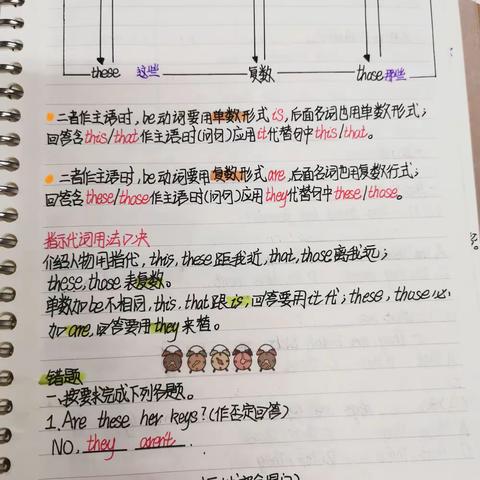 these 这些 复数 those 那些
二者作主语时,be动词要用单数形式is,后面名词也用单数形式;
回答含this/that作主语时(问句)应用it代替句中this/that。
二者作主语时,be动词要用复数形式are,后面名词也用复数行式;
回答含these/those作主语时(问句)应用they代替句中these/those。
指示代词用法口决
介绍人物用指代,this,these距我近,that,those离我远;
these,those表复数。
单数加be不相同,this,that跟is,回答要用it代;these,those必
加are,回答要用they来替。
错题
一、按要求完成下列各题。
1.Are these her keys?(作否定回答)
NO, they aren't.